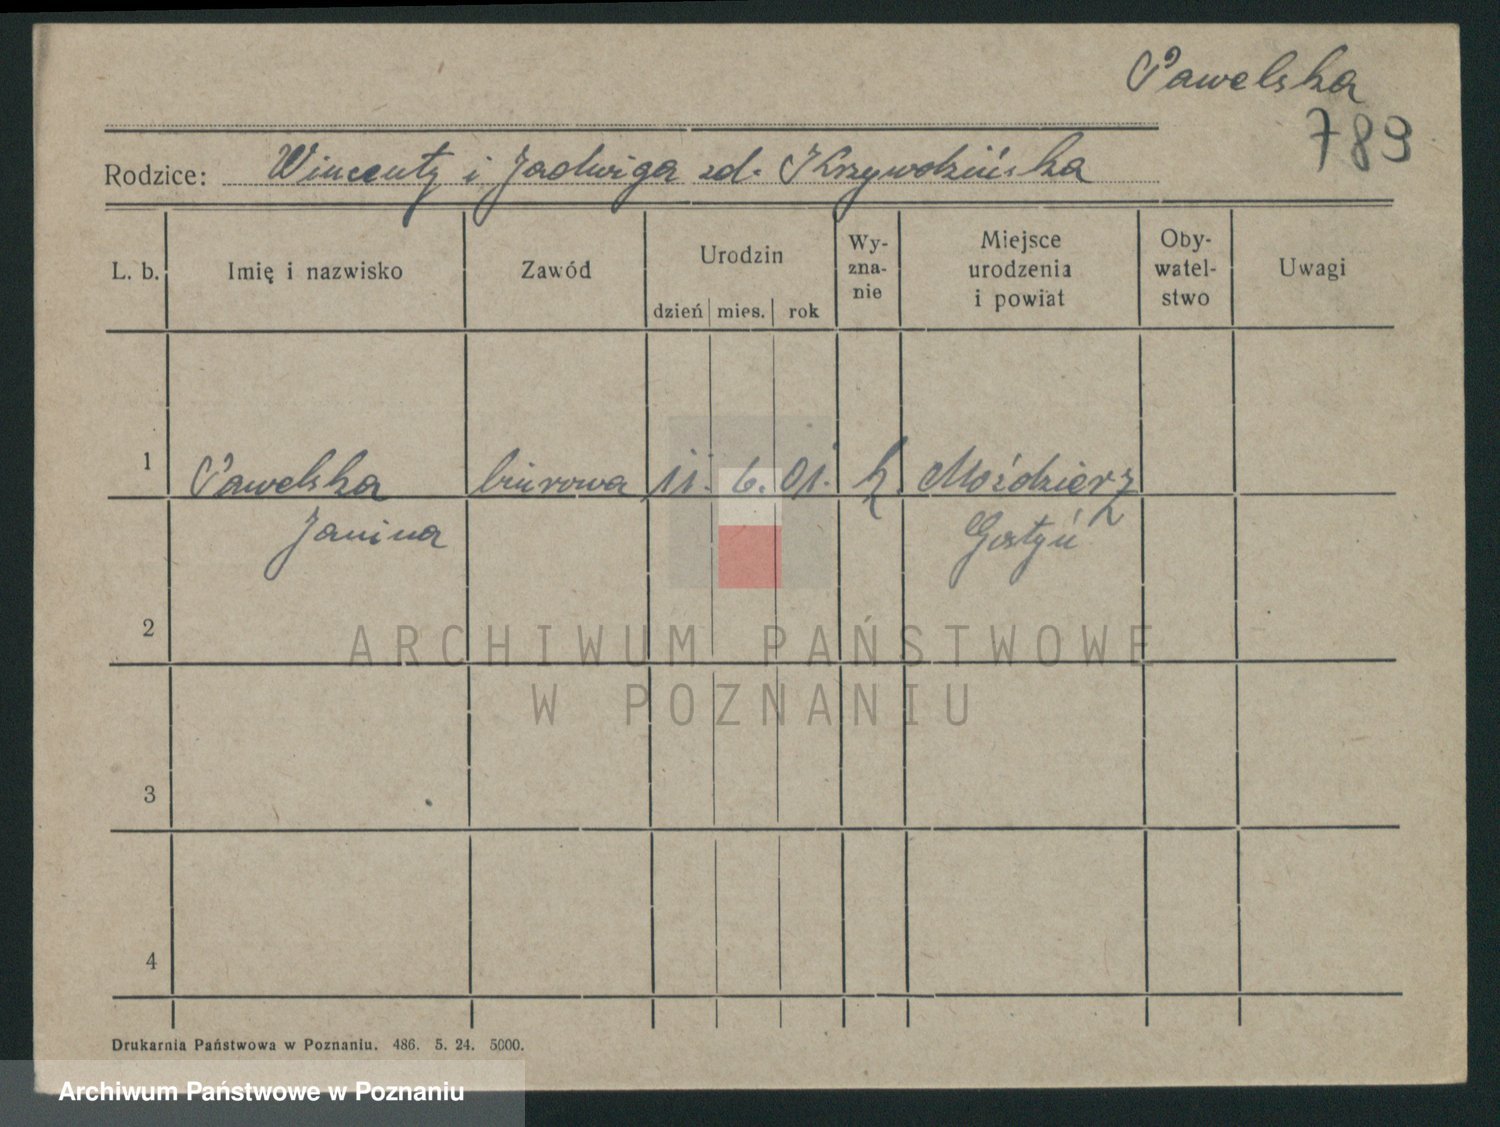 Pawelska
789
Rodzice: Wincenty i Jadwiga zd. Krzywdzińska
L. b. Imię i nazwisko Zawód Urodzin dzień mies. rok Wy-zna-nie Miejsce urodzenia i powiat Oby-watel-stwo Uwagi
1 Pawelska biurowa 11. 6. 01. k. Moździerz
Janina Gostyń
2
ARCHIWUM PAŃSTWOWE
W POZNANIU
3
4
Drukarnia Państwowa w Poznaniu. 486. 5. 24. 5000.
Archiwum Państwowe w Poznaniu